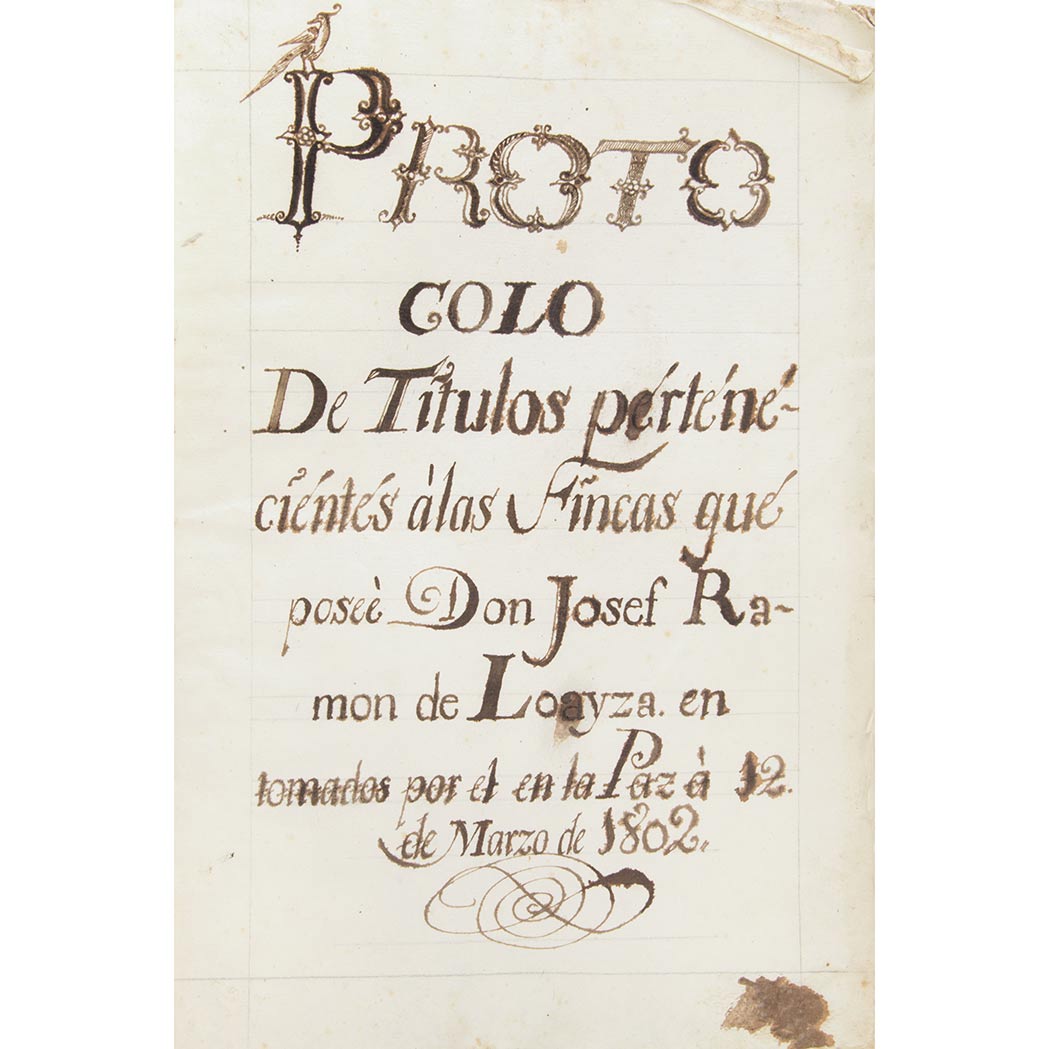 PROTO
COLO
De Titulos pérténé-
ciéntés àlas Fincas qué
poseè Don Josef Ra-
mon de Loayza. en
tomados por el en la Paz à 12.
de Marzo de 1802.